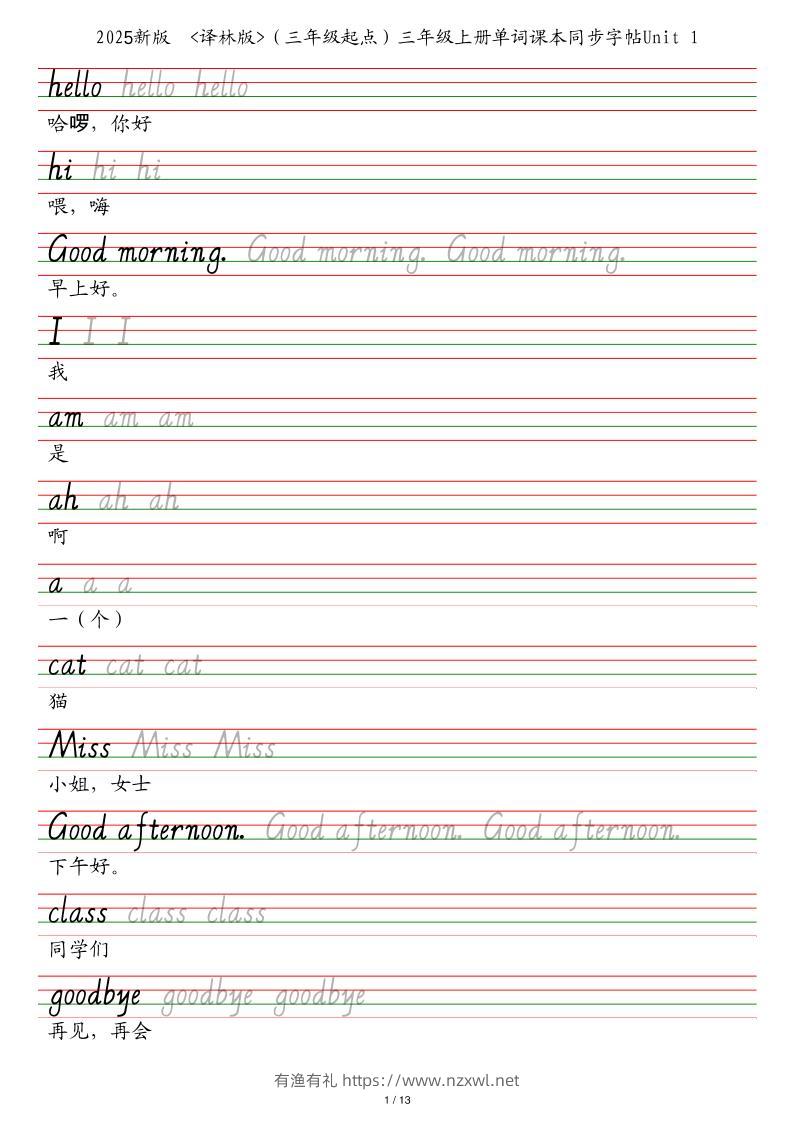 2025新版 <译林版>（三年级起点）三年级上册单词课本同步字帖Unit 1
hello hello hello
哈啰，你好
hi hi hi
喂，嗨
Good morning. Good morning. Good morning.
早上好。
I I I
我
am am am
是
ah ah ah
啊
a a a
一（个）
cat cat cat
猫
Miss Miss Miss
小姐，女士
Good afternoon. Good afternoon. Good afternoon.
下午好。
class class class
同学们
goodbye goodbye goodbye
再见，再会
有渔有礼 https://www.nzxwl.net
1 / 13